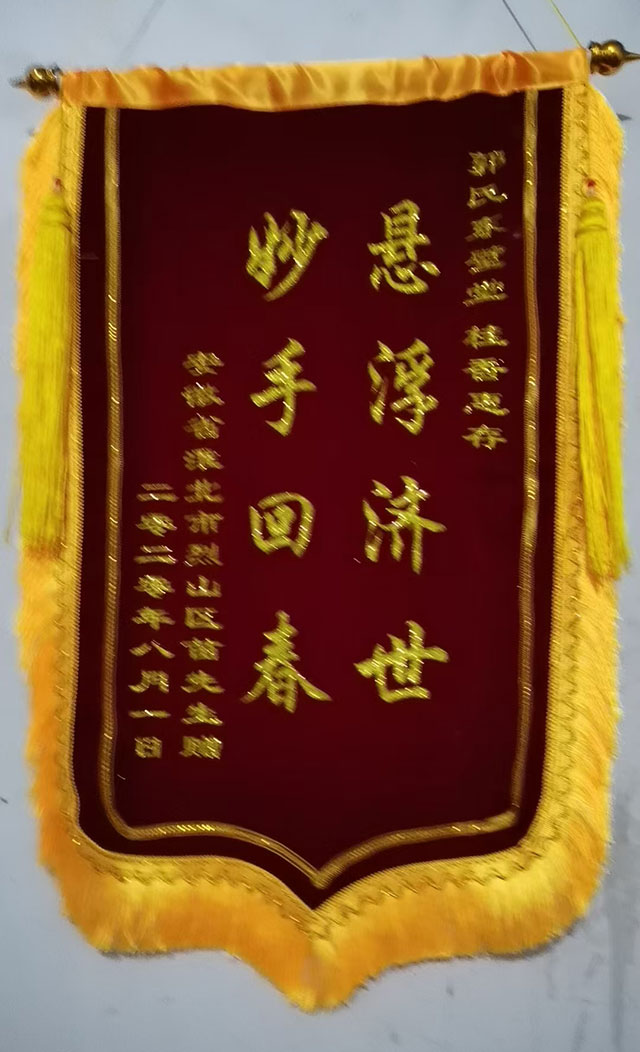 郭氏承萱堂 桂香惠存
悬浮济世
妙手回春
安徽省淮北市烈山区苗先生赠
二零二零年八月一日